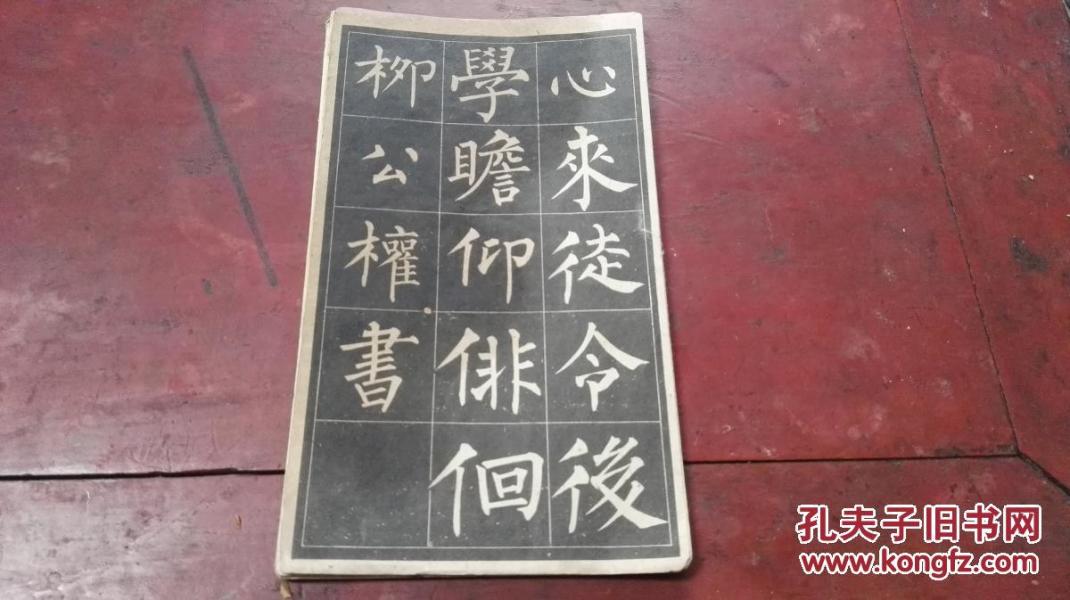 心來徒令後
學瞻仰俳佪
柳公權書
孔夫子旧书网
www.kongfz.com